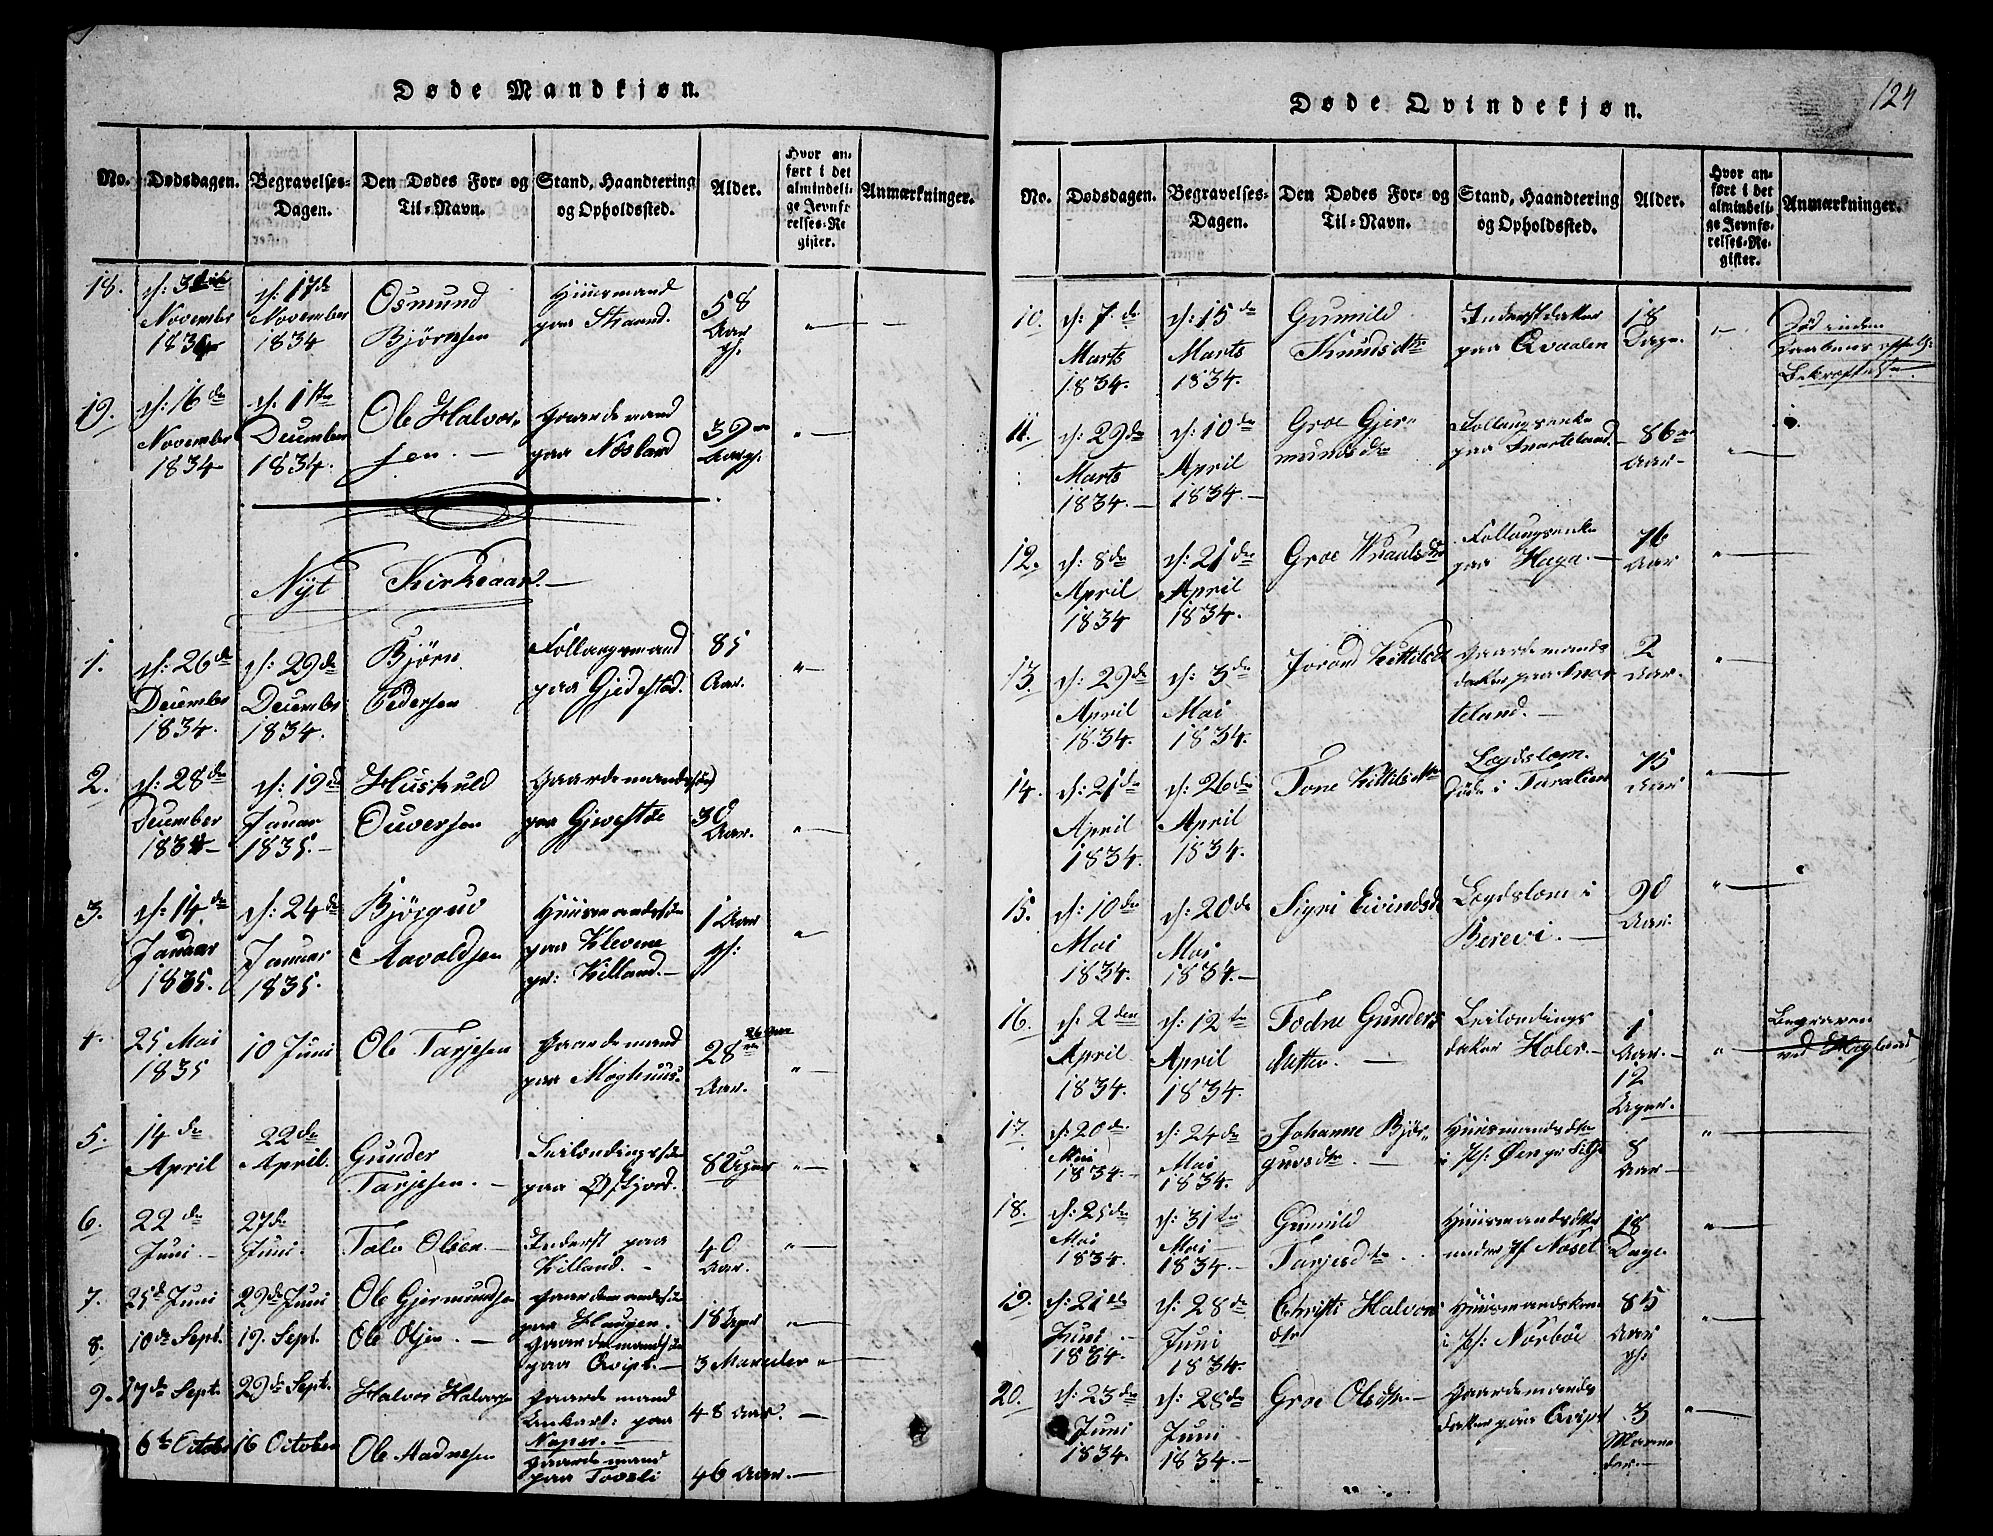 Døde Mandkjøn.
No.
Dødsdagen.
Begravelses-
Dagen.
Den Dødes For- og
Til-Navn.
Stand, Haandtering
og Opholdssted.
Alder.
Hvor an-
ført i det
almindeli-
ge Jevnfø
relses-Re
gister.
Anmærkninger.
18.
November
d: 17de
November
1834
Osmund
Bjørnsen
Huusmand
paa Strand.
58
Aar
19.
d: 16de
November
1834
d: 1ste
December
1834.
Ole Halvor-
sen. —
Gaardemand
paa Næsland
39
Nyt Kirkeaar. —
1.
d: 26de
December
1834.
d: 29de
December
1834.
Bjørn
Pedersen
Follaugsmand
paa Gjedestad.
85
Aar.
2.
d: 28de
December
1834 —
d: 19de
Januar
1835. —
Huskuld
Ouversen
Gaardemandssøn
paa
30
Aar.
3.
d: 14de
Januar
1835.
d: 24de
Januar
1835.
Bjørguv
Aavaldsen
Huusmandssøn
paa Klevene
pr: Killand. —
1 Aar
4.
25 Mai
1835
10 Juni
Ole Tarjesen
Gaardemand
paa Moghuus.
28
Aar.
5.
14de
April
22de
April.
Gunder
Tarjesen. —
Leilændingssøn
paa
8 Uger
6.
22de
Juni. —
27de
Juni.
Tolv Olsen. —
Inderst paa
Killand. —
40
Aar.
7.
25de Juni
29de Juni
Ole Gjermundsen
Gaardemandssøn
paa Haugen.
18 Uger
8.
10de Sept.
19. Sept.
Ole Olsen. —
Gaardemandssøn
paa Qvipt. —
3 Maaneder
9.
17de Sept.
29de Sept.
Halvor Halvorsen
Gaardemand
paa
48 Aar. —
6te October
16 October
Ole Madnesen
Gaardemand
paa Toveli
46 Aar. —
Døde Qvindekjøn.
124
No.
Dødsdagen.
Begravelses-
Dagen.
Den Dødes For- og
Til-Navn.
Stand, Haandtering
og Opholdssted.
Alder.
Hvor an-
ført i det
almindeli-
ge Jevnfø-
relses-Re-
gister.
Anmærkninger.
10.
d: 7de
Marts
1834.
d: 15de
Marts
1834.
Gunnild
Knudsdtr
Inderstdatter
paa Qvaalen
18
Dage.
Død inden
Daabens
Bekræftelse.
11.
d: 29de
Marts
1834. —
d: 10de
April
1834. —
Groe Gjer-
mundsdtr
Follaugsenke
paa Svarteland.
86
Aar —
12.
d: 8de
April
1834
d: 21de
April
1834.
Groe
Follaugsenke
paa Haga. —
76
Aar
13.
d: 29de
April
1834.
d: 3de
Mai
1834.
Jorand Kittilsdtr
Gaardemands
datter paa Svar
teland. —
2
Aar.
14.
d: 21de
April
1834.
d: 26de
April
1834.
Tone Kittilsdtr
Lægdslem.
Døde i
75
Aar
15.
d: 10de
Mai
1834.
d: 20de
Mai
1834. —
Sigri Eivindsdtr
Lægdslem i
Berevi. —
90
Aar.
16.
d: 2den
April
1834.
d: 12te
April
1834.
Todne Gunders
datter. —
Leilændings
datter Holer. —
1
Aar. —
12
Uger.
Begraven
ved
17.
d: 20de
Mai
1834. —
d: 24de
Mai
1834.
Johanne Bjør-
guvsdtr. —
Huusmandsdtr
8
Aar —
18.
d: 25de
Mai
1834.
d: 31te
Mai —
1834. —
Gunnild
Tarjesdtr
Huusmandsdtter
under Næset.
18
Dage.
19.
d: 21de
Juni —
1834.
d: 28de
Juni
1834.
Christi Halvors
dtr
Huusmandskone
i Norbøe
85
Aar
20.
d: 23de
Juni
1834.
d: 28de
Juni
1834. —
Groe Olsdtr —
Gaardemands
datter paa Qvipt
3
Maane
der. —